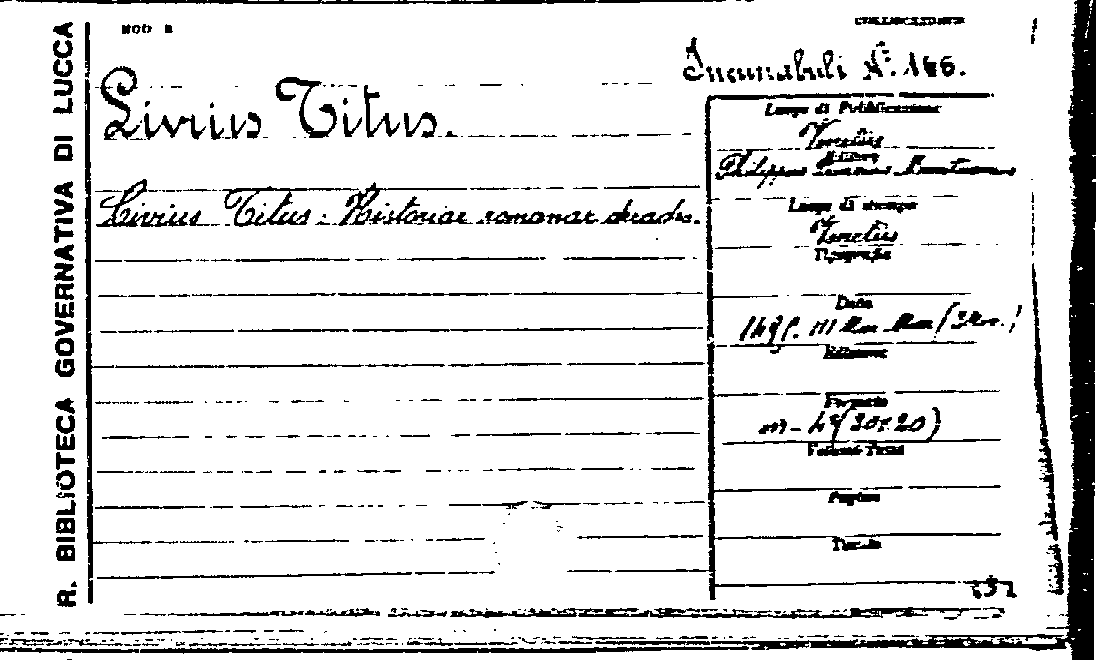 R. BIBLIOTECA GOVERNATIVA DI LUCCA
MOD
COLLOCAZIONE
Incunabuli N.º 166.
Livius Titus.
Livius Titus: Historiae romanae decades.
Luogo di Pubblicazione
Venetiis
Editore
Philippus
Luogo di stampa
Venetiis
Tipografia
Data
Edizione
Formato
in-4º (30x20)
Volumi
Pagine